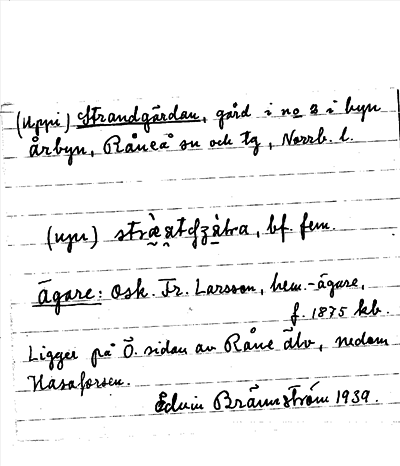 (Uppi) Strandgärdan, gård i no 3 i byn
Årbyn, Råneå sn och tg, Norrb. l.
(upi) bf. fem.
Ägare: Osk. Fr. Larsson, hem.-ägare,
f. 1875 kb.
Ligger på Ö. sidan av Råne älv, nedom
Hasaforsen.
Edvin Brännström 1939.